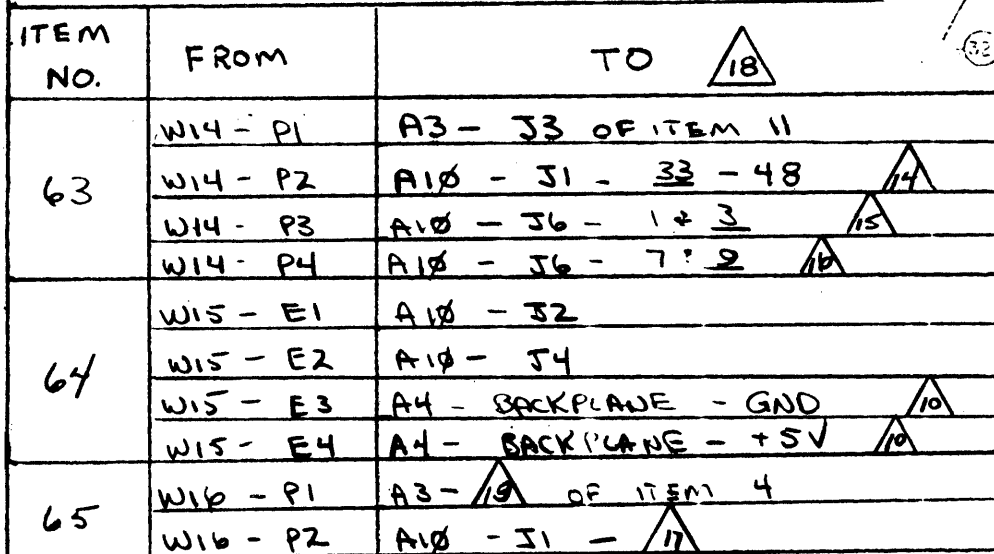 ITEM NO. FROM TO 18
32
W14 - P1 A3 - J3 OF ITEM 11
63 W14 - P2 A1Ø - J1 - 33 - 48 14
W14 - P3 A1Ø - J6 - 1 & 3 15
W14 - P4 A1Ø - J6 - 7 : 9 16
W15 - E1 A1Ø - J2
64 W15 - E2 A1Ø - J4
W15 - E3 A4 - BACKPLANE - GND 10
W15 - E4 A4 - BACKPLANE - +5V 10
65 W16 - P1 A3 - 19 OF ITEM 4
W16 - P2 A1Ø - J1 - 17